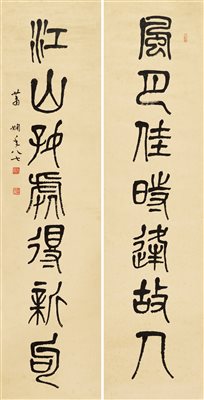 風日佳時逢故人
江山好處得新句
蕭嫻年八七